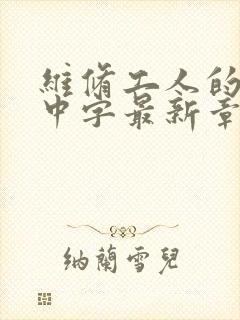 維脩工人的
中字最新章
纳蘭雪兒